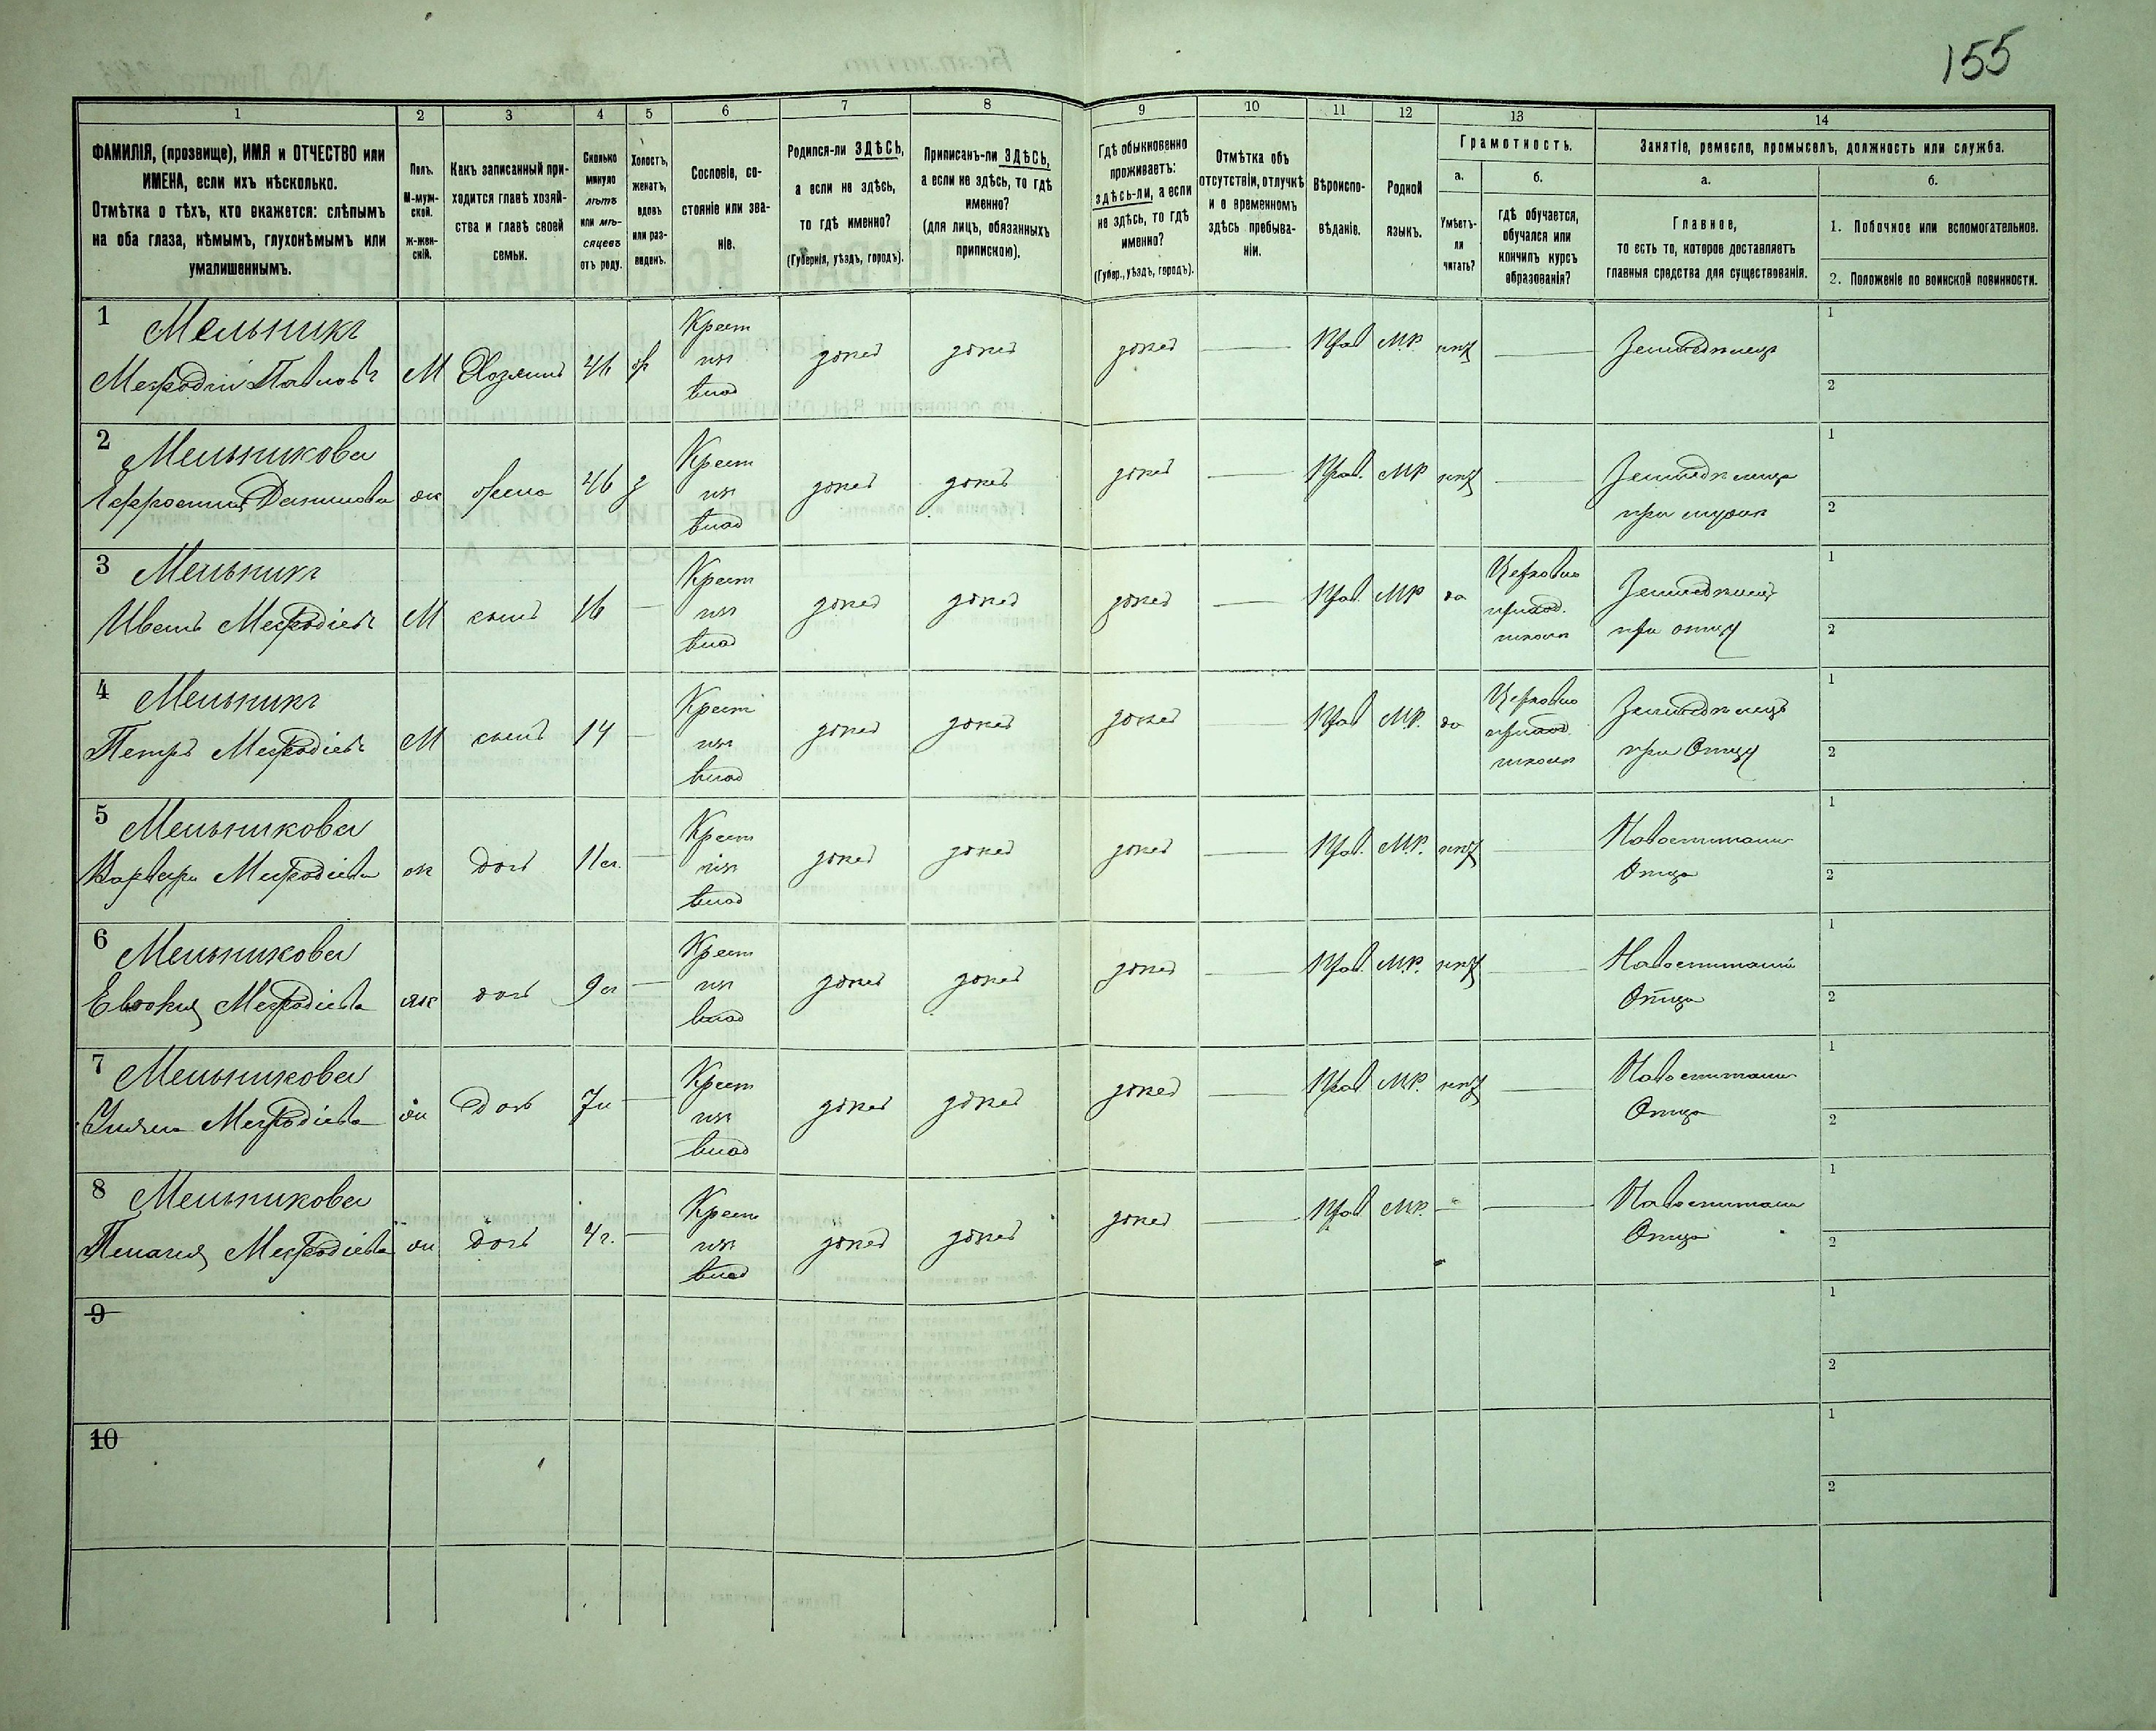 155
1
2
3
4
5
6
7
8
9
10
11
12
13
14
ФАМИЛІЯ, (прозвище), ИМЯ и ОТЧЕСТВО или
ИМЕНА, если ихъ нѣсколько.
Отмѣтка о тѣхъ, кто окажется: слѣпымъ
на оба глаза, нѣмымъ, глухонѣмымъ или
умалишеннымъ.
Полъ.
М-муж-
ской.
ж-жен-
скій.
Какъ записанный при-
ходится главѣ хозяй-
ства и главѣ своей
семьи.
Сколько
минуло
лѣтъ
или мѣ-
сяцевъ
отъ роду.
Холостъ,
женатъ,
вдовъ
или раз-
веденъ.
Сословіе, со-
стояніе или зва-
ніе.
Родился-ли ЗДѢСЬ,
а если не здѣсь,
то гдѣ именно?
(Губернія, уѣздъ, городъ).
Приписанъ-ли ЗДѢСЬ,
а если не здѣсь, то гдѣ
именно?
(для лицъ, обязанныхъ
припискою).
Гдѣ обыкновенно
проживаетъ:
здѣсь-ли, а если
не здѣсь, то гдѣ
именно?
(Губер., уѣздъ, городъ).
Отмѣтка объ
отсутствіи, отлучкѣ
и о временномъ
здѣсь пребыва-
ніи.
Вѣроиспо-
вѣданіе.
Родной
языкъ.
Грамотность.
а.
Умѣетъ-
ли
читать?
б.
гдѣ обучается,
обучался или
кончилъ курсъ
образованія?
Занятіе, ремесло, промыселъ, должность или служба.
а.
Главное,
то есть то, которое доставляетъ
главныя средства для существованія.
б.
1. Побочное или вспомогательное.
2. Положеніе по воинской повинности.
1 Мельникъ
Мефодій Павловъ
М
Хозяинъ
46
Крест
изъ
влад
здѣсь
здѣсь
здѣсь
Прав
М.Р.
нѣтъ
Земледѣлецъ
1
2
2 Мельникова
Ефросинія Данилова
ж
жена
46
з
Крест
изъ
влад
здѣсь
здѣсь
здѣсь
Прав.
МР
нѣтъ
Земледѣлица
при мужѣ
1
2
3 Мельникъ
Иванъ Мефодіевъ
М
сынъ
16
Крест
изъ
влад
здѣсь
здѣсь
здѣсь
Прав.
МР
да
Церковно
приход.
школѣ
Земледѣлецъ
при отцѣ
1
2
4 Мельникъ
Петръ Мефодіевъ
М
сынъ
14
Крест
изъ
влад
здѣсь
здѣсь
здѣсь
Прав
МР.
да
Церковно
приход.
школѣ
Земледѣлецъ
при Отцѣ
1
2
5 Мельникова
Варвара Мефодіева
ж
дочь
11 л.
Крест
изъ
влад
здѣсь
здѣсь
здѣсь
Прав.
М.Р.
нѣтъ
На воспитаніи
Отца
1
2
6 Мельникова
Евдокія Мефодіева
ж
дочь
9 л
Крест
изъ
влад
здѣсь
здѣсь
здѣсь
Прав.
М.Р.
нѣтъ
На воспитаніи
Отца
1
2
7 Мельникова
Уляна Мефодіева
ж
Дочь
7 л
Крест
изъ
влад
здѣсь
здѣсь
здѣсь
Прав
М.Р.
нѣтъ
На воспитаніи
Отца
1
2
8 Мельникова
Пелагія Мефодіева
ж
дочь
4 г.
Крест
изъ
влад
здѣсь
здѣсь
здѣсь
Прав
М.Р.
На воспитаніи
Отца
1
2
9
1
2
10
1
2